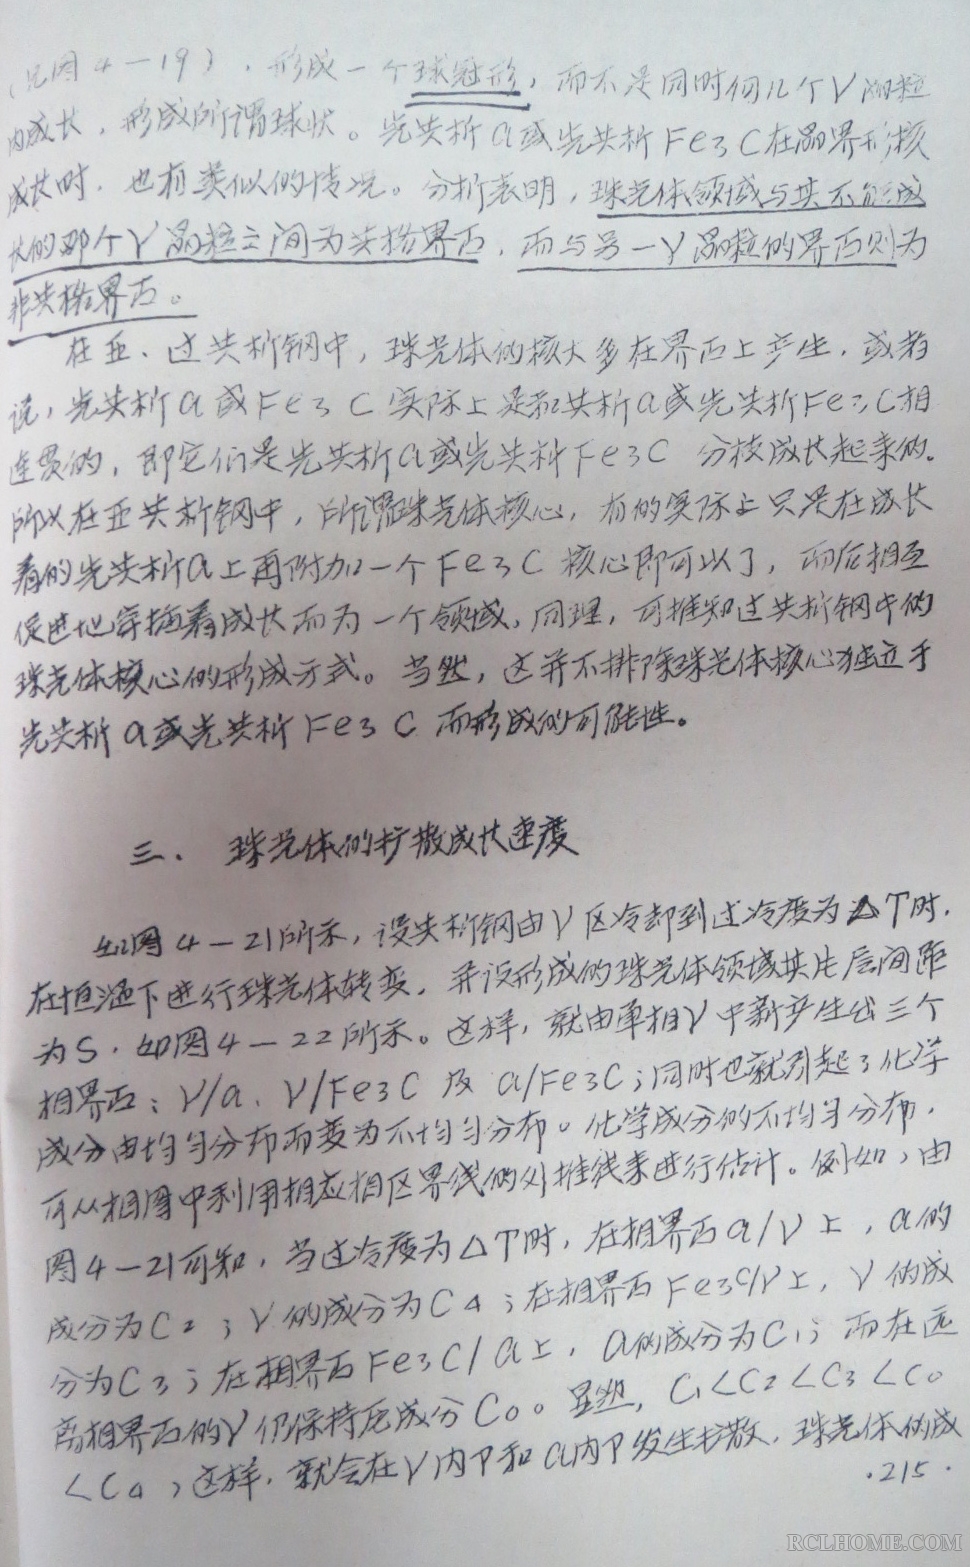 （见图4—19），形成一个球冠形，而不是同时向几个γ晶粒
内成长，形成所谓球状。先共析α或先共析Fe3C在晶界形核
成长时，也有类似的情况。分析表明，珠光体领域与其不能成
长的那个γ晶粒之间为共格界面，而与另一γ晶粒的界面则为
非共格界面。
在亚、过共析钢中，珠光体的核大多在界面上产生，或者
说，先共析α或Fe3C实际上是和共析α或先共析Fe3C相
连贯的，即它们是先共析α或先共析Fe3C 分枝成长起来的。
所以在亚共析钢中，所谓珠光体核心，有的实际上只是在成长
着的先共析α上再附加一个Fe3C核心即可以了，而后相互
促进地穿插着成长而为一个领域，同理，可推知过共析钢中的
珠光体核心的形成方式。当然，这并不排除珠光体核心独立于
先共析α或先共析Fe3C而形成的可能性。
三、 珠光体的扩散成长速度
如图4—21所示，设共析钢由γ区冷却到过冷度为△T时，
在恒温下进行珠光体转变，并设形成的珠光体领域其片层间距
为S，如图4—22所示。这样，就由单相γ中新产生出三个
相界面：γ/α、γ/Fe3C及α/Fe3C；同时也就引起了化学
成分由均匀分布而变为不均匀分布。化学成分的不均匀分布，
可从相图中利用相应相区界线的外推线来进行估计。例如，由
图4—21可知，当过冷度为△T时，在相界面α/γ上，α的
成分为C2；γ的成分为C4；在相界面Fe3C/γ上，γ的成
分为C3；在相界面Fe3C/α上，α的成分为C1；而在远
离相界面的γ仍保持原成分C0。显然，C1<C2<C3<C0
<C4，这样，就会在γ内部和α内部发生扩散，珠光体的成
·215·
RCLHOME.COM